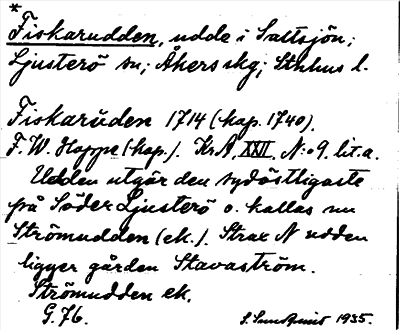 *
Fiskarudden, udde i Saltsjön;
Ljusterö sn; Åkers skg; Sthlms l.
Fiskarüden 1714 (kop. 1740).
F. W. Hoppe (kop.). Kr.A, XXII, N:o 9. lit. a.
Udden utgör den sydöstligaste
på Söder Ljusterö o. kallas nu
Strömudden (ek.). Strax N udden
ligger gården Stavaström.
Strömudden ek.
G. 76.
1935.